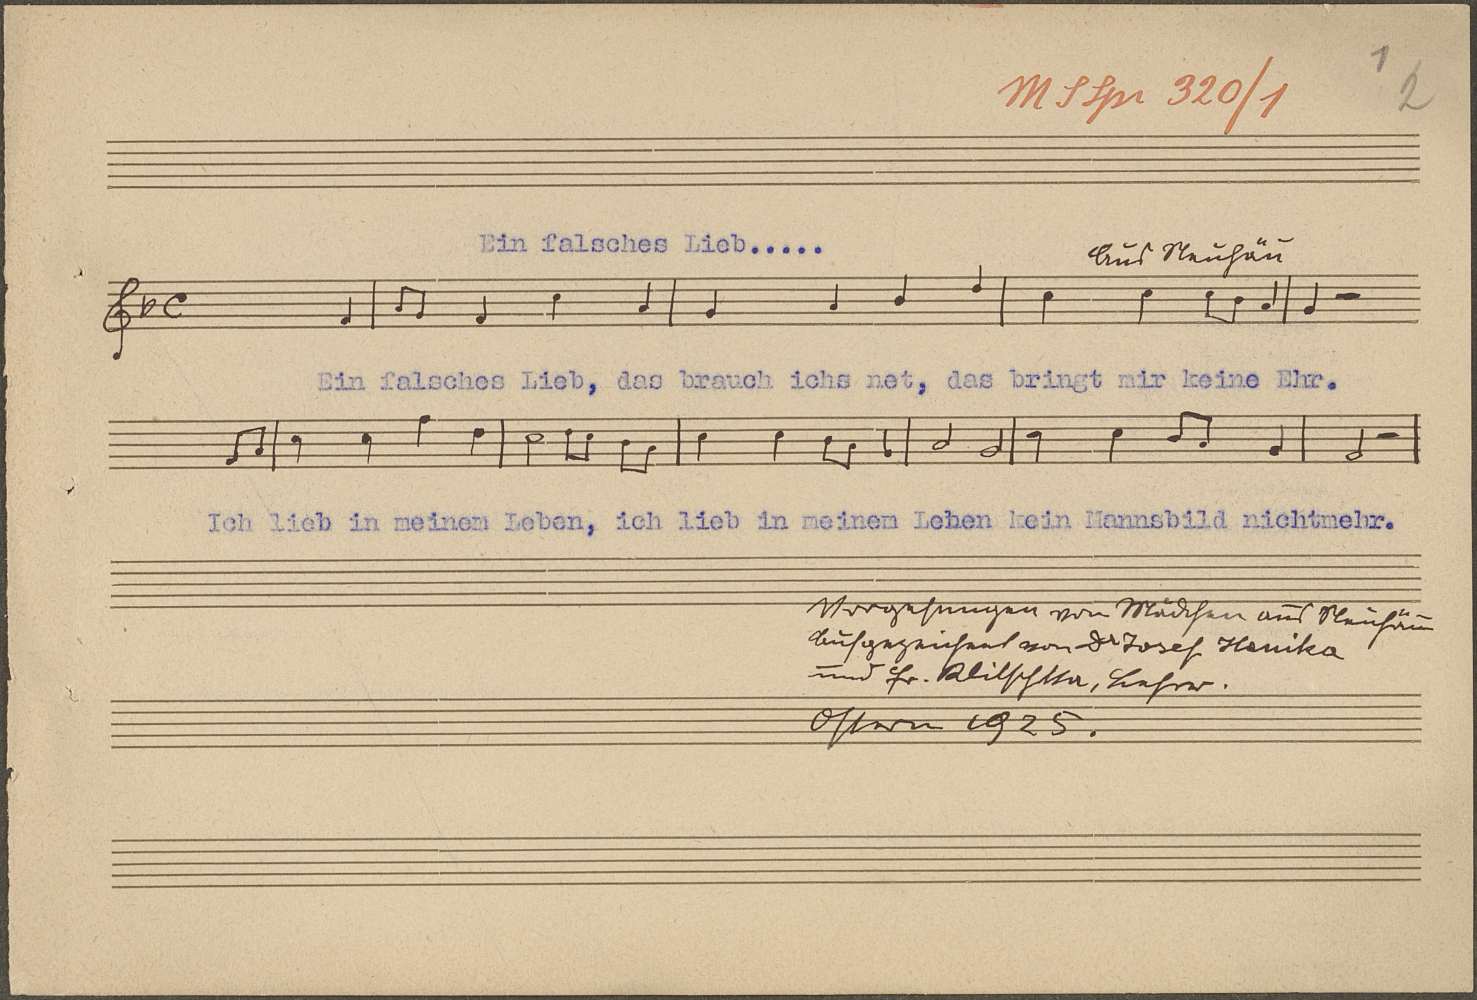 1
2
320/1
Ein falsches Lieb.....
aus Neuhäu
Ein falsches Lieb, das brauch ichs net, das bringt mir keine Ehr.
Ich lieb in meinem Leben, ich lieb in meinem Leben kein Mannsbild nichtmehr.
Vorgesungen von Mädchen aus Neuhäu
Aufgezeichnet von Dr Josef Hanika
und Fr. Lehrer.
Ostern 1925.